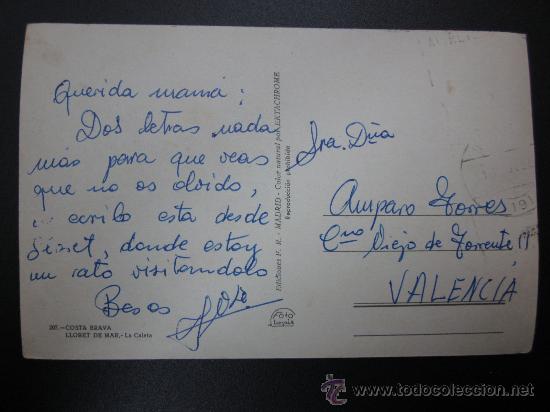 Querida mamá:
Dos letras nada
más para que veas
que no os olvido,
escribo esta desde
donde estoy
un rato visitándolo
Besos
207.—COSTA BRAVA
LLORET DE MAR.—La Caleta
Ediciones F. R. - MADRID - Color natural por EKTACHROME
Reproducción prohibida
Foto
Sra. Dña
Amparo Torres
Cno Viejo de Torrente 17
VALENCIA
todocoleccion
www.todocoleccion.net